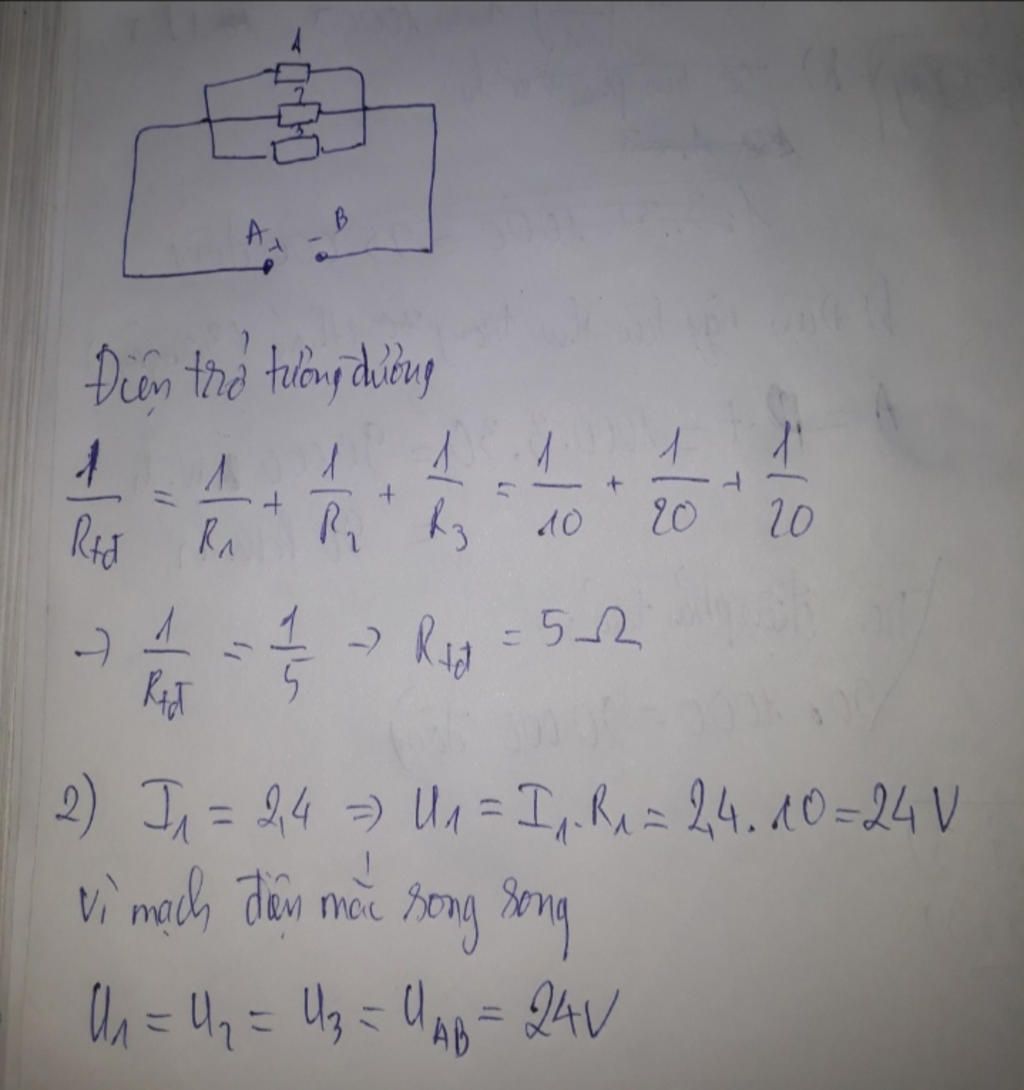 1
2
3
A + - B
Điện trở tương đương
1/Rtđ = 1/R1 + 1/R2 + 1/R3 = 1/10 + 1/20 + 1/20
→ 1/Rtđ = 1/5 → Rtđ = 5Ω
2) I1 = 2,4 ⇒ U1 = I1.R1 = 2,4.10 = 24V
Vì mạch điện mắc song song
U1 = U2 = U3 = UAB = 24V